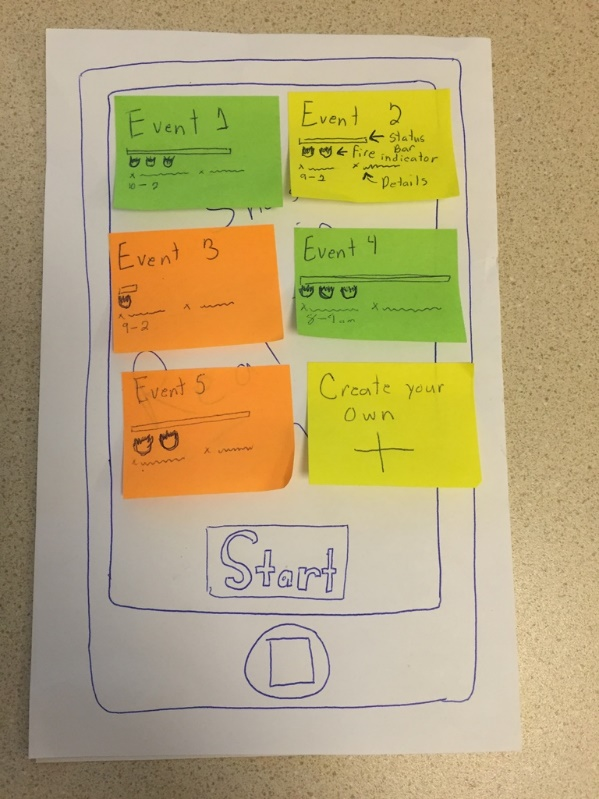 Event 1
10-2
Event 2
Status
Bar
Fire indicator
Details
9-2
Event 3
9-2
Event 4
Event 5
Create your
own
Start